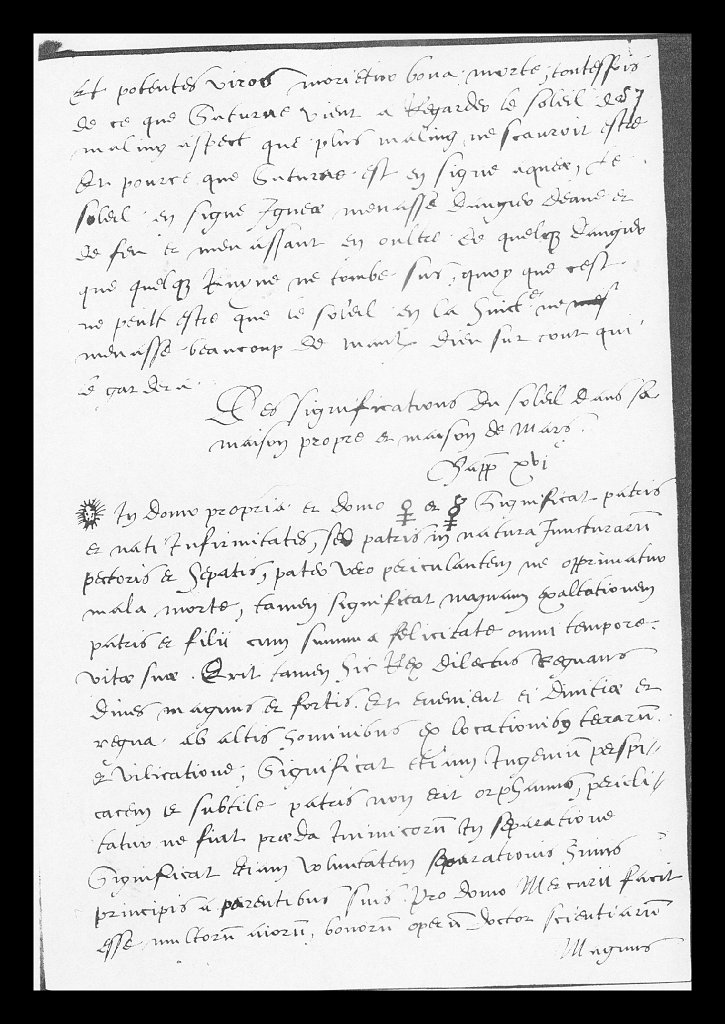 Et potentes viros morietur bona morte, toutesfois
de ce que Saturne vient a Regarder le soleil de
maling aspect que plus maling ne scauroit estre
Et pource que Saturne est en signe aqueæ, le
soleil en signe Igneæ menasse dangier deaue et
de feu et menassant en oultre de quelq dangier
que quelq ne tombe sur, quoy que cest
ne peult estre que le soleil en la ne
menasse beaucoup de maulx dieu sur tout qui
le gardera.
Des significations du soleil dans sa
maison propre et maison de Mars.
Chapp xvi
In domo propria et domo ♀ et ☿ Significat patris
et nati Infirmitates, sed patris in natura Juncturarū
pectoris et hepatis, pater vero periculantem ne opprimatur
mala morte, tamen significat magnam exaltationem
patris et filii cum summa felicitate omni tempore
vitæ suæ. Erit tamen hic Rex dilectus Regnans
dives magnus et fortis. Et evenient ei divitiæ et
regna ab altis hominibus ex locationibus terarū.
et vilicatione, Significat etiam Ingeniū perspi-
cacem et subtile patris non erit orphanus, pericli-
tatur ne fiat præda Inimicorū In separatione
Significat etiam voluntatem separationis huius
principis a parentibus suis. Pro domo Mercurii facit
esse multorū bonorū operū doctor scientiarū
Magnus